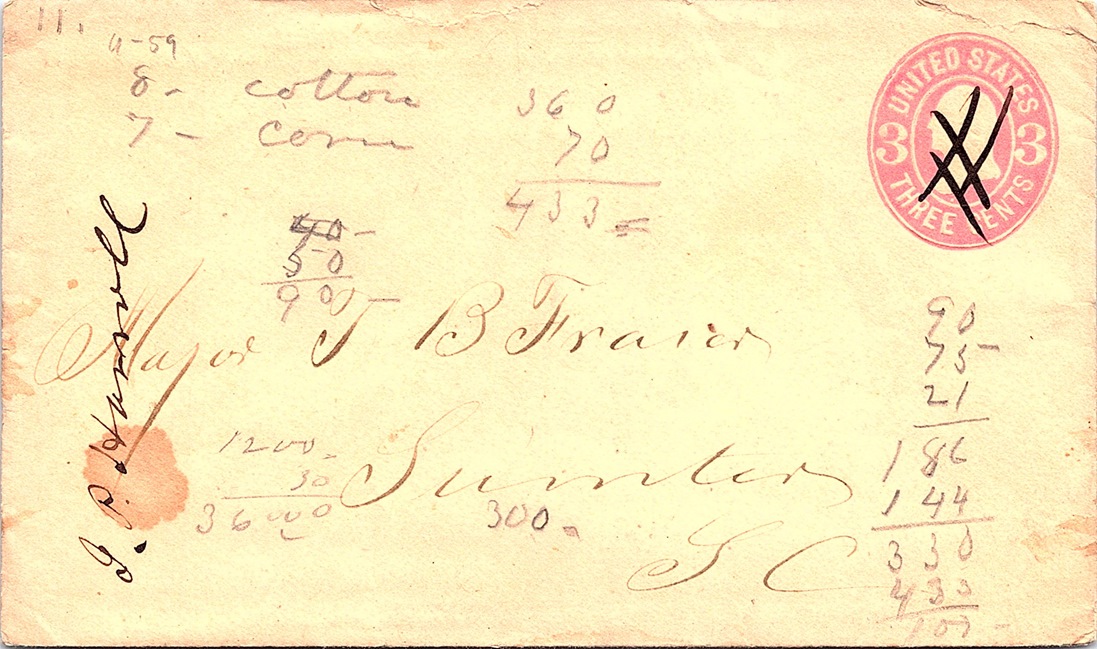 11.
U-59
8- cotton
7- corn
360
70
433
UNITED STATES
3 3
THREE CENTS
40-
50
90-
Major T B Fraser
J. P. Harrell
90
75-
21
186
144
330
433
Sumter
S C
1200-
30
36000
300